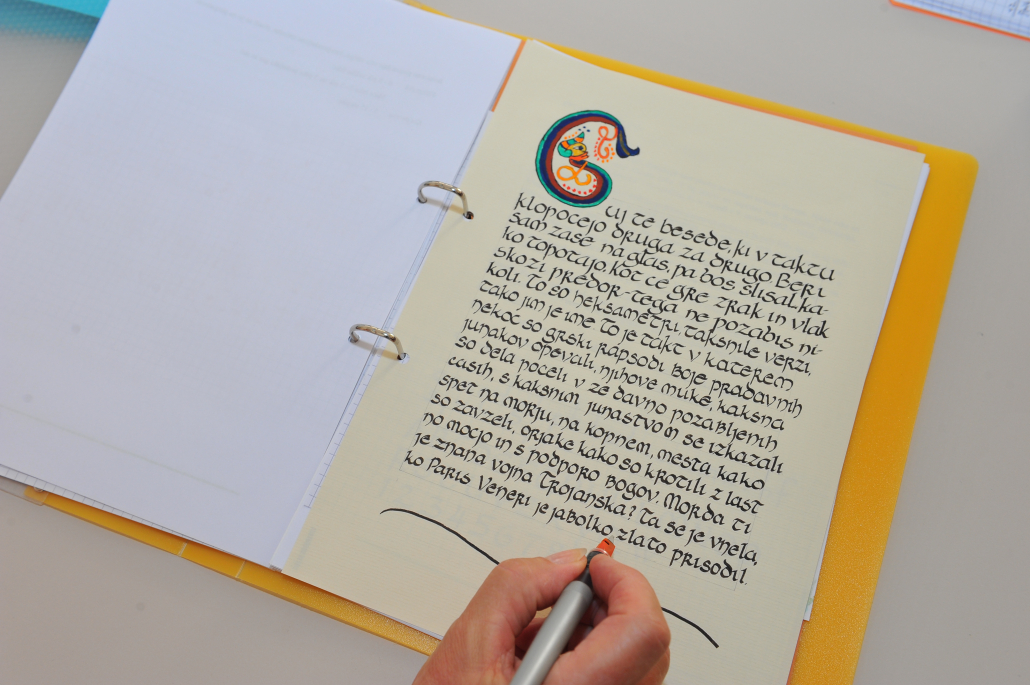 Cuj te besede, ki v taktu
klopocejo druga za drugo Beri
sam zase na glas, pa bos slisal, ka-
ko topotajo, kot ce gre zrak in vlak
skozi predor - tega ne pozabis ni-
koli. To so heksametri, taksnile verzi,
tako jim je ime To je takt v katerem
nekoc so grski rapsodi boje pradavnih
junakov opevali, njihove muke, kaksna
so dela poceli v ze davno pozabljenih
casih, s kaksnim junastvom se izkazali
spet na morju, na kopnem, mesta kako
so zavzeli, orjake kako so krotili z last
no mocjo in s podporo bogov. Morda ti
je znana vojna Trojanska? Ta se je vnela,
ko Paris Veneri je jabolko zlato prisodil.